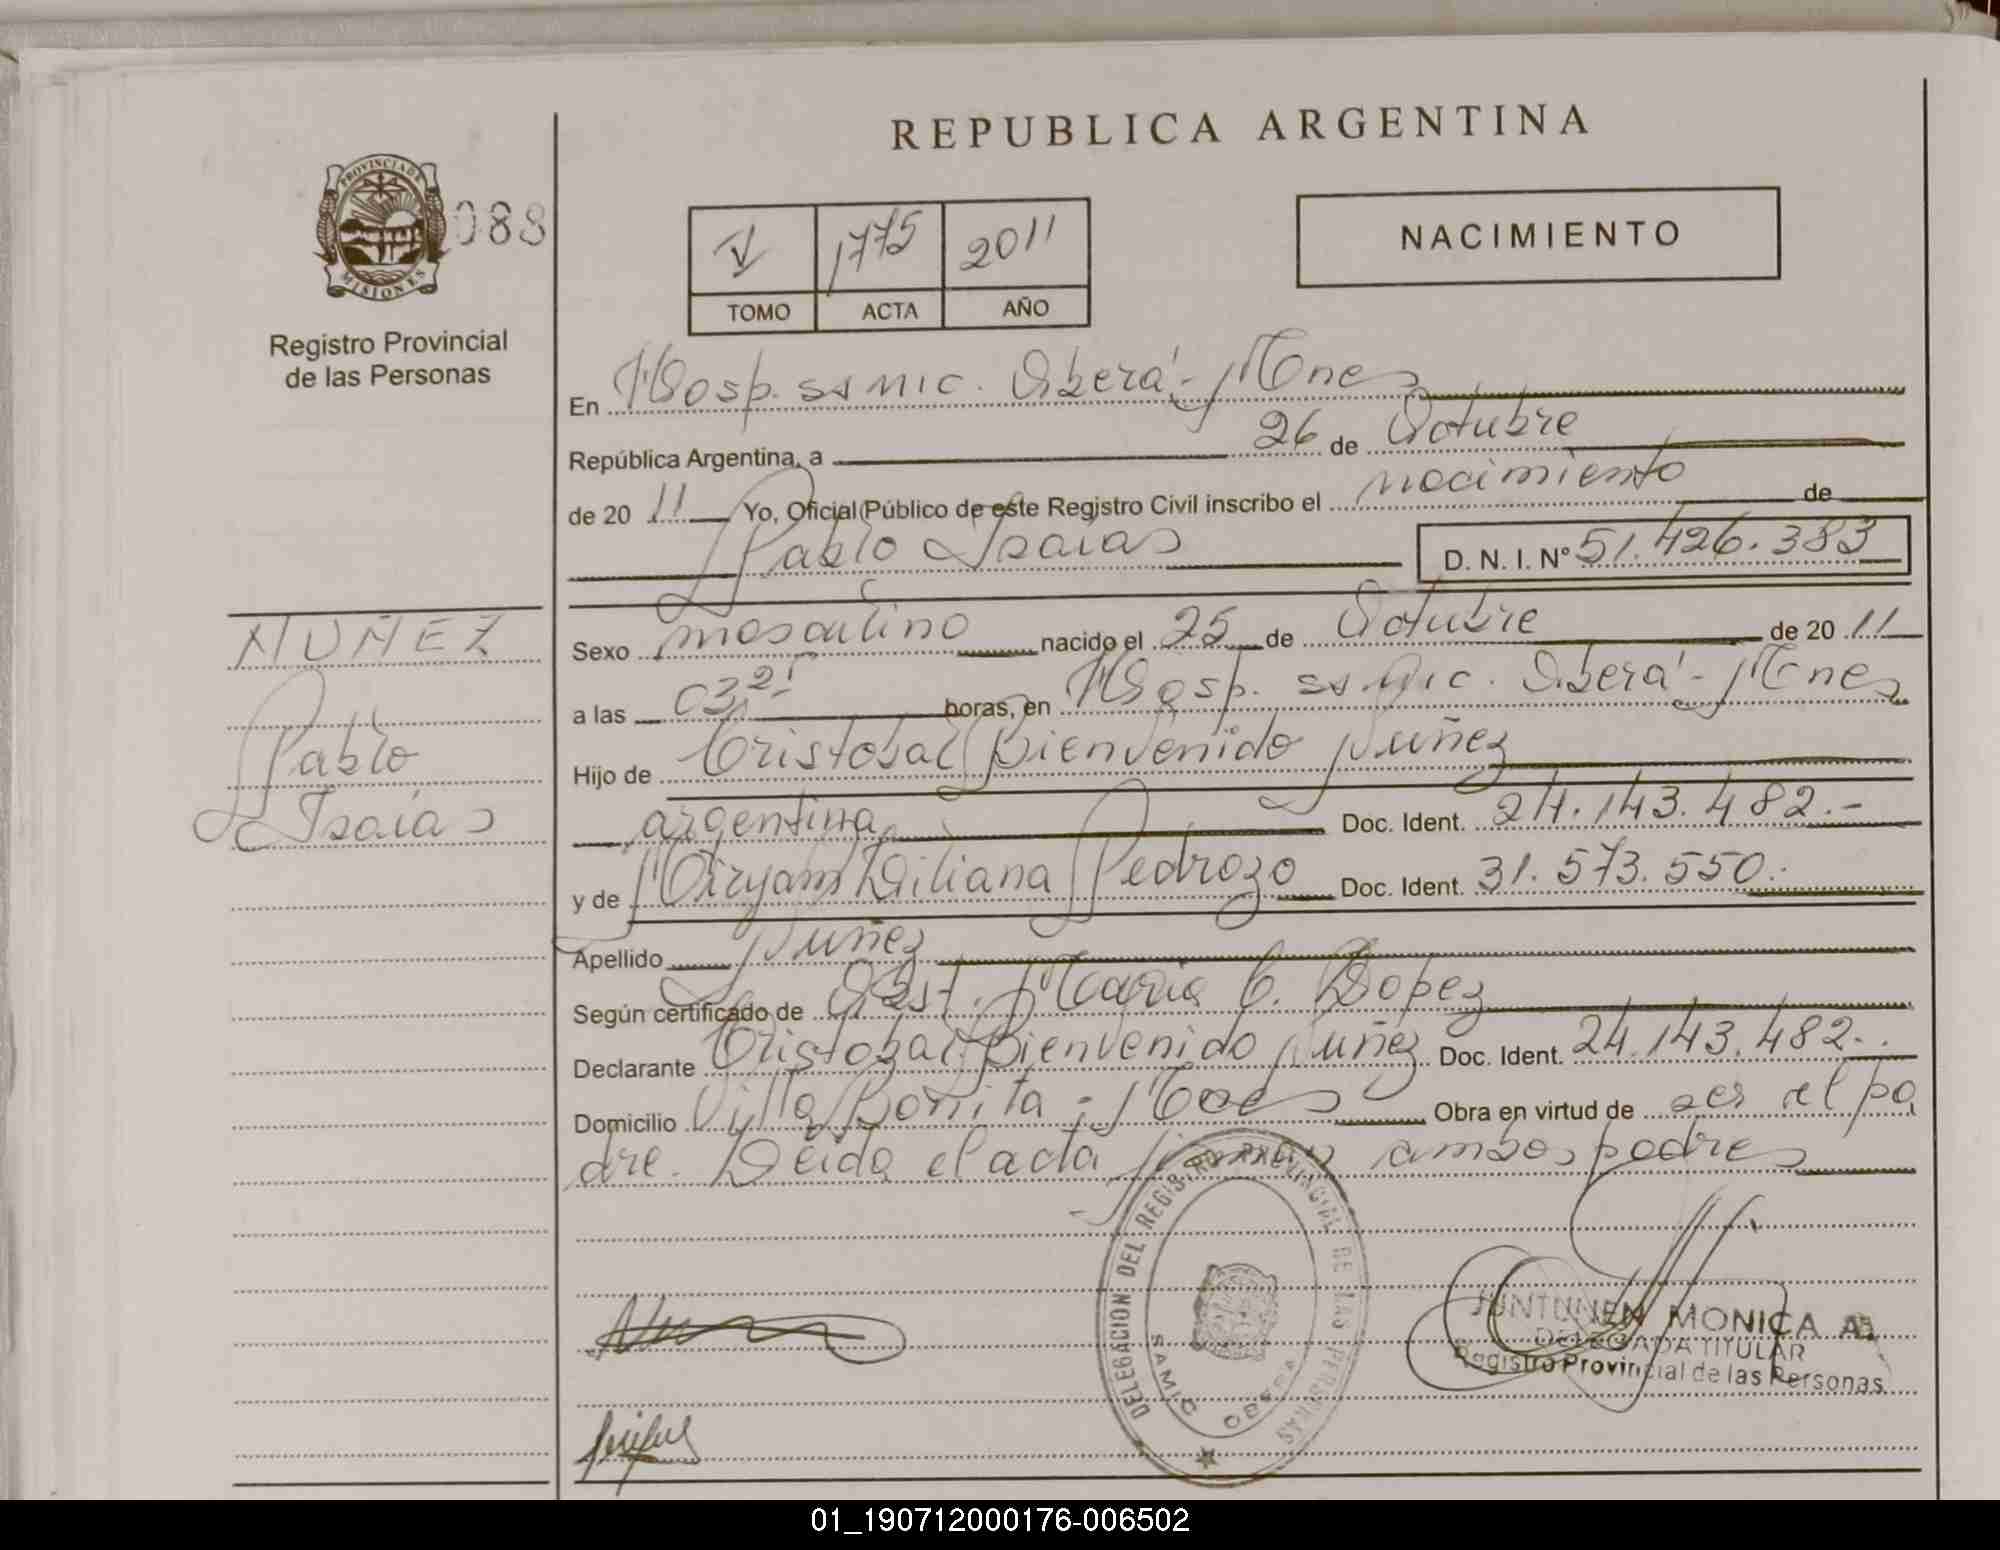 REPUBLICA ARGENTINA
PROVINCIA DE
MISIONES
088
Registro Provincial
de las Personas
V 1775 2011
TOMO ACTA AÑO
NACIMIENTO
En Hosp. ssmic. Oberá - Mnes
República Argentina, a 26 de Octubre
de 20 11 Yo, Oficial Público de este Registro Civil inscribo el nacimiento de
Pablo Isaias D. N. I. Nº 51.426.383
NUÑEZ
Pablo
Isaias
Sexo masculino nacido el 25 de Octubre de 20 11
a las horas, en Hosp. ssmic. Oberá - Mnes
Hijo de Cristobal Bienvenido Nuñez
argentina Doc. Ident. 24.143.482.-
y de Miryam Liliana Pedrozo Doc. Ident. 31.573.550.-
Apellido Nuñez
Según certificado de Obst. Maria C. Lopez
Declarante Cristobal Bienvenido Nuñez Doc. Ident. 24.143.482.-
Domicilio Villa Bonita - Mnes Obra en virtud de ser el pa
dre. Leida el acta firman ambos padres
DELEGACION DEL REGISTRO PROVINCIAL DE LAS PERSONAS
SAMIC OBERA
JUNTUNEN MONICA A.
DELEGADA TITULAR
Registro Provincial de las Personas
01_190712000176-006502